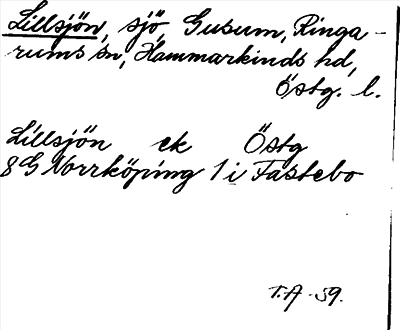 Lillsjön, sjö, Gusum, Ringa-
rums sn, Hammarkinds hd,
Östg. l.
Lillsjön ek Östg
8G Norrköping 1 i Fastebo
T.A -59.